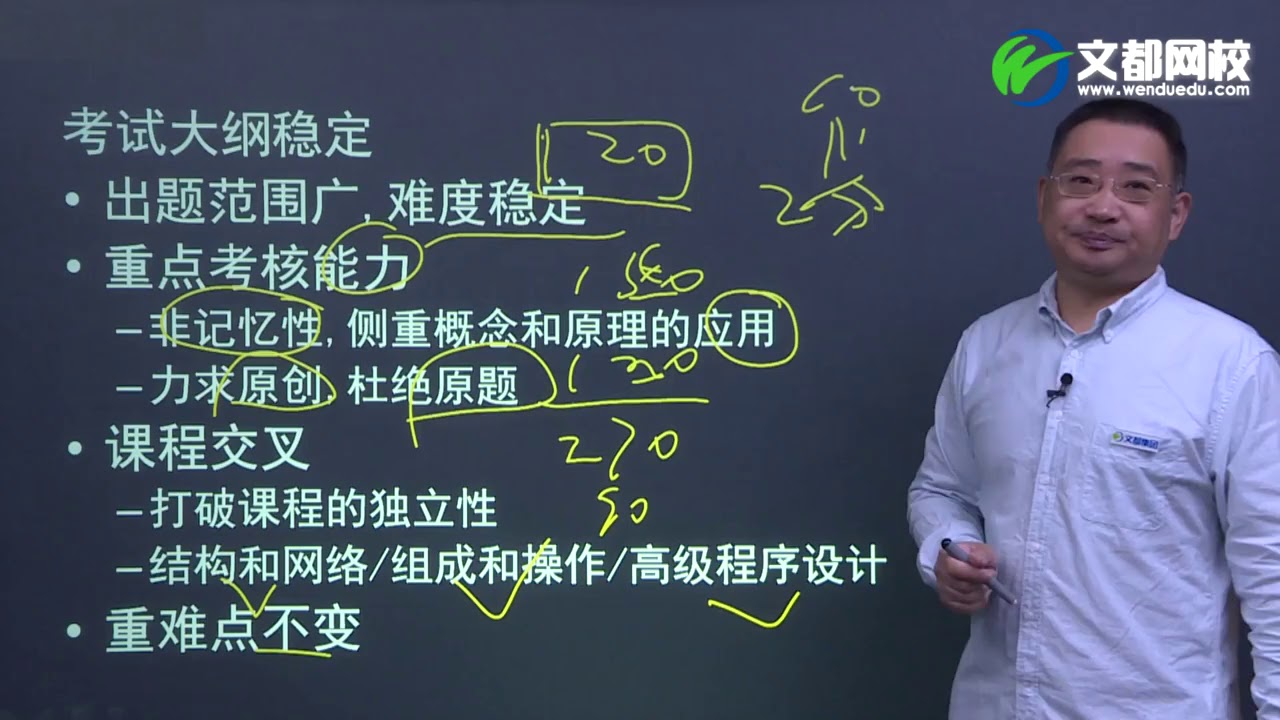 文都网校
www.wenduedu.com
考试大纲稳定
120
60
• 出题范围广,难度稳定
2分
• 重点考核能力
1
–非记忆性,侧重概念和原理的应用
–力求原创,杜绝原题
120
• 课程交叉
270
文都集团
–打破课程的独立性
90
–结构和网络/组成和操作/高级程序设计
• 重难点不变